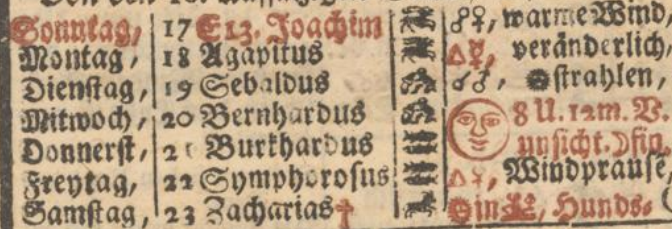 Sonntag, 17 E 13. Joachim ☍♀, warme Wind,
Montag, 18 Agapitus △☿, veränderlich,
Dienstag, 19 Sebaldus ☌♂, strahlen,
Mitwoch, 20 Bernhardus 8 U. 12m. V.
Donnerst, 21 Burkhardus unsicht. ☽fin.
Freytag, 22 Symphorosus △♀, Windprause,
Samstag, 23 Zacharias † ☉in, Hunds-